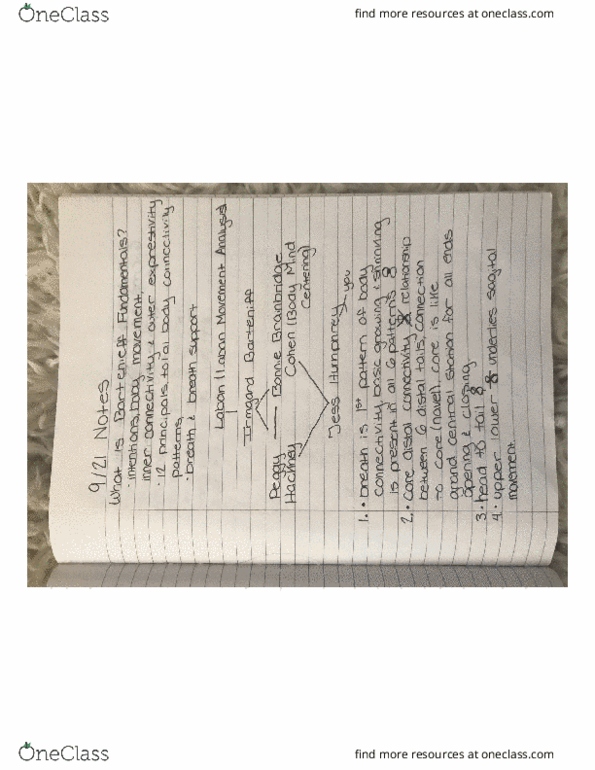 OneClass
find more resources at oneclass.com
9/21 Notes
What is Bartenieff Fundamentals?
· intentions, body movement,
inner connectivity & outer expressivity
· 12 principals, total body connectivity
patterns
· breath & breath support
Laban (Laban Movement Analysis)
Irmgard Barteniff
Peggy Hackney
Bonnie Brainbridge Cohen (Body Mind Centering)
Jess Humphrey
you
1. • breath is 1st pattern of body
connectivity, basic growing & shrinking
is present in all 6 patterns
2. • core distal connectivity relationship
between 6 distal tails. connection
to core (navel), core is like
grand central station for all ends
opening & closing
3. • head to tail
4. • upper lower underlies sagital
movement
OneClass
find more resources at oneclass.com